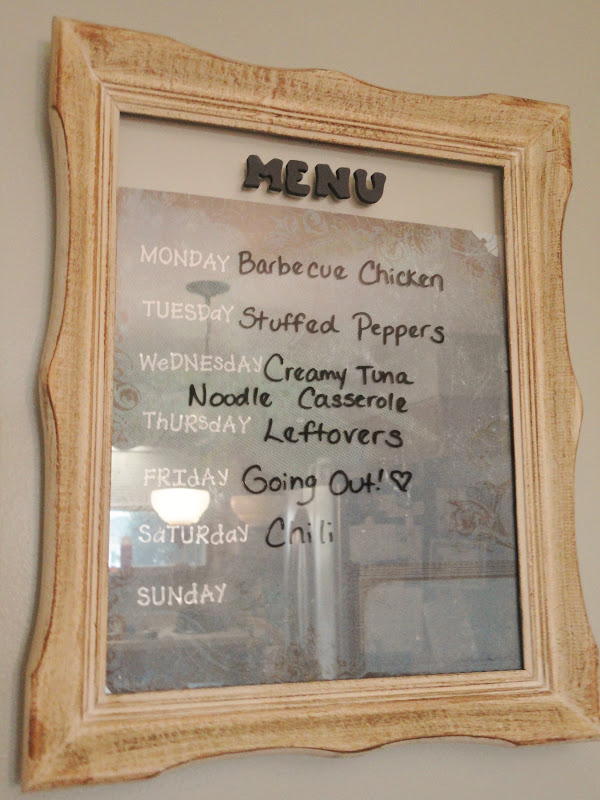 MENU
MONDAY Barbecue Chicken
TUESDaY Stuffed Peppers
WeDNESdAY Creamy Tuna
Noodle Casserole
ThURSdAY Leftovers
FRIdAY Going Out! ♡
SaTURday Chili
SUNdAY